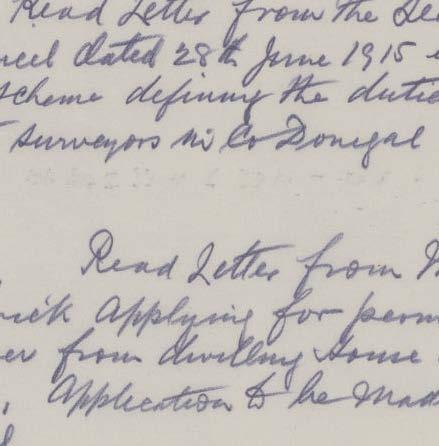 Read Letter from the
dated 28th June 1915
scheme defining the dutie
surveyors in Co Donegal
Read Letter from
rick Applying for perm
er from dwelling House
Application to be Mad